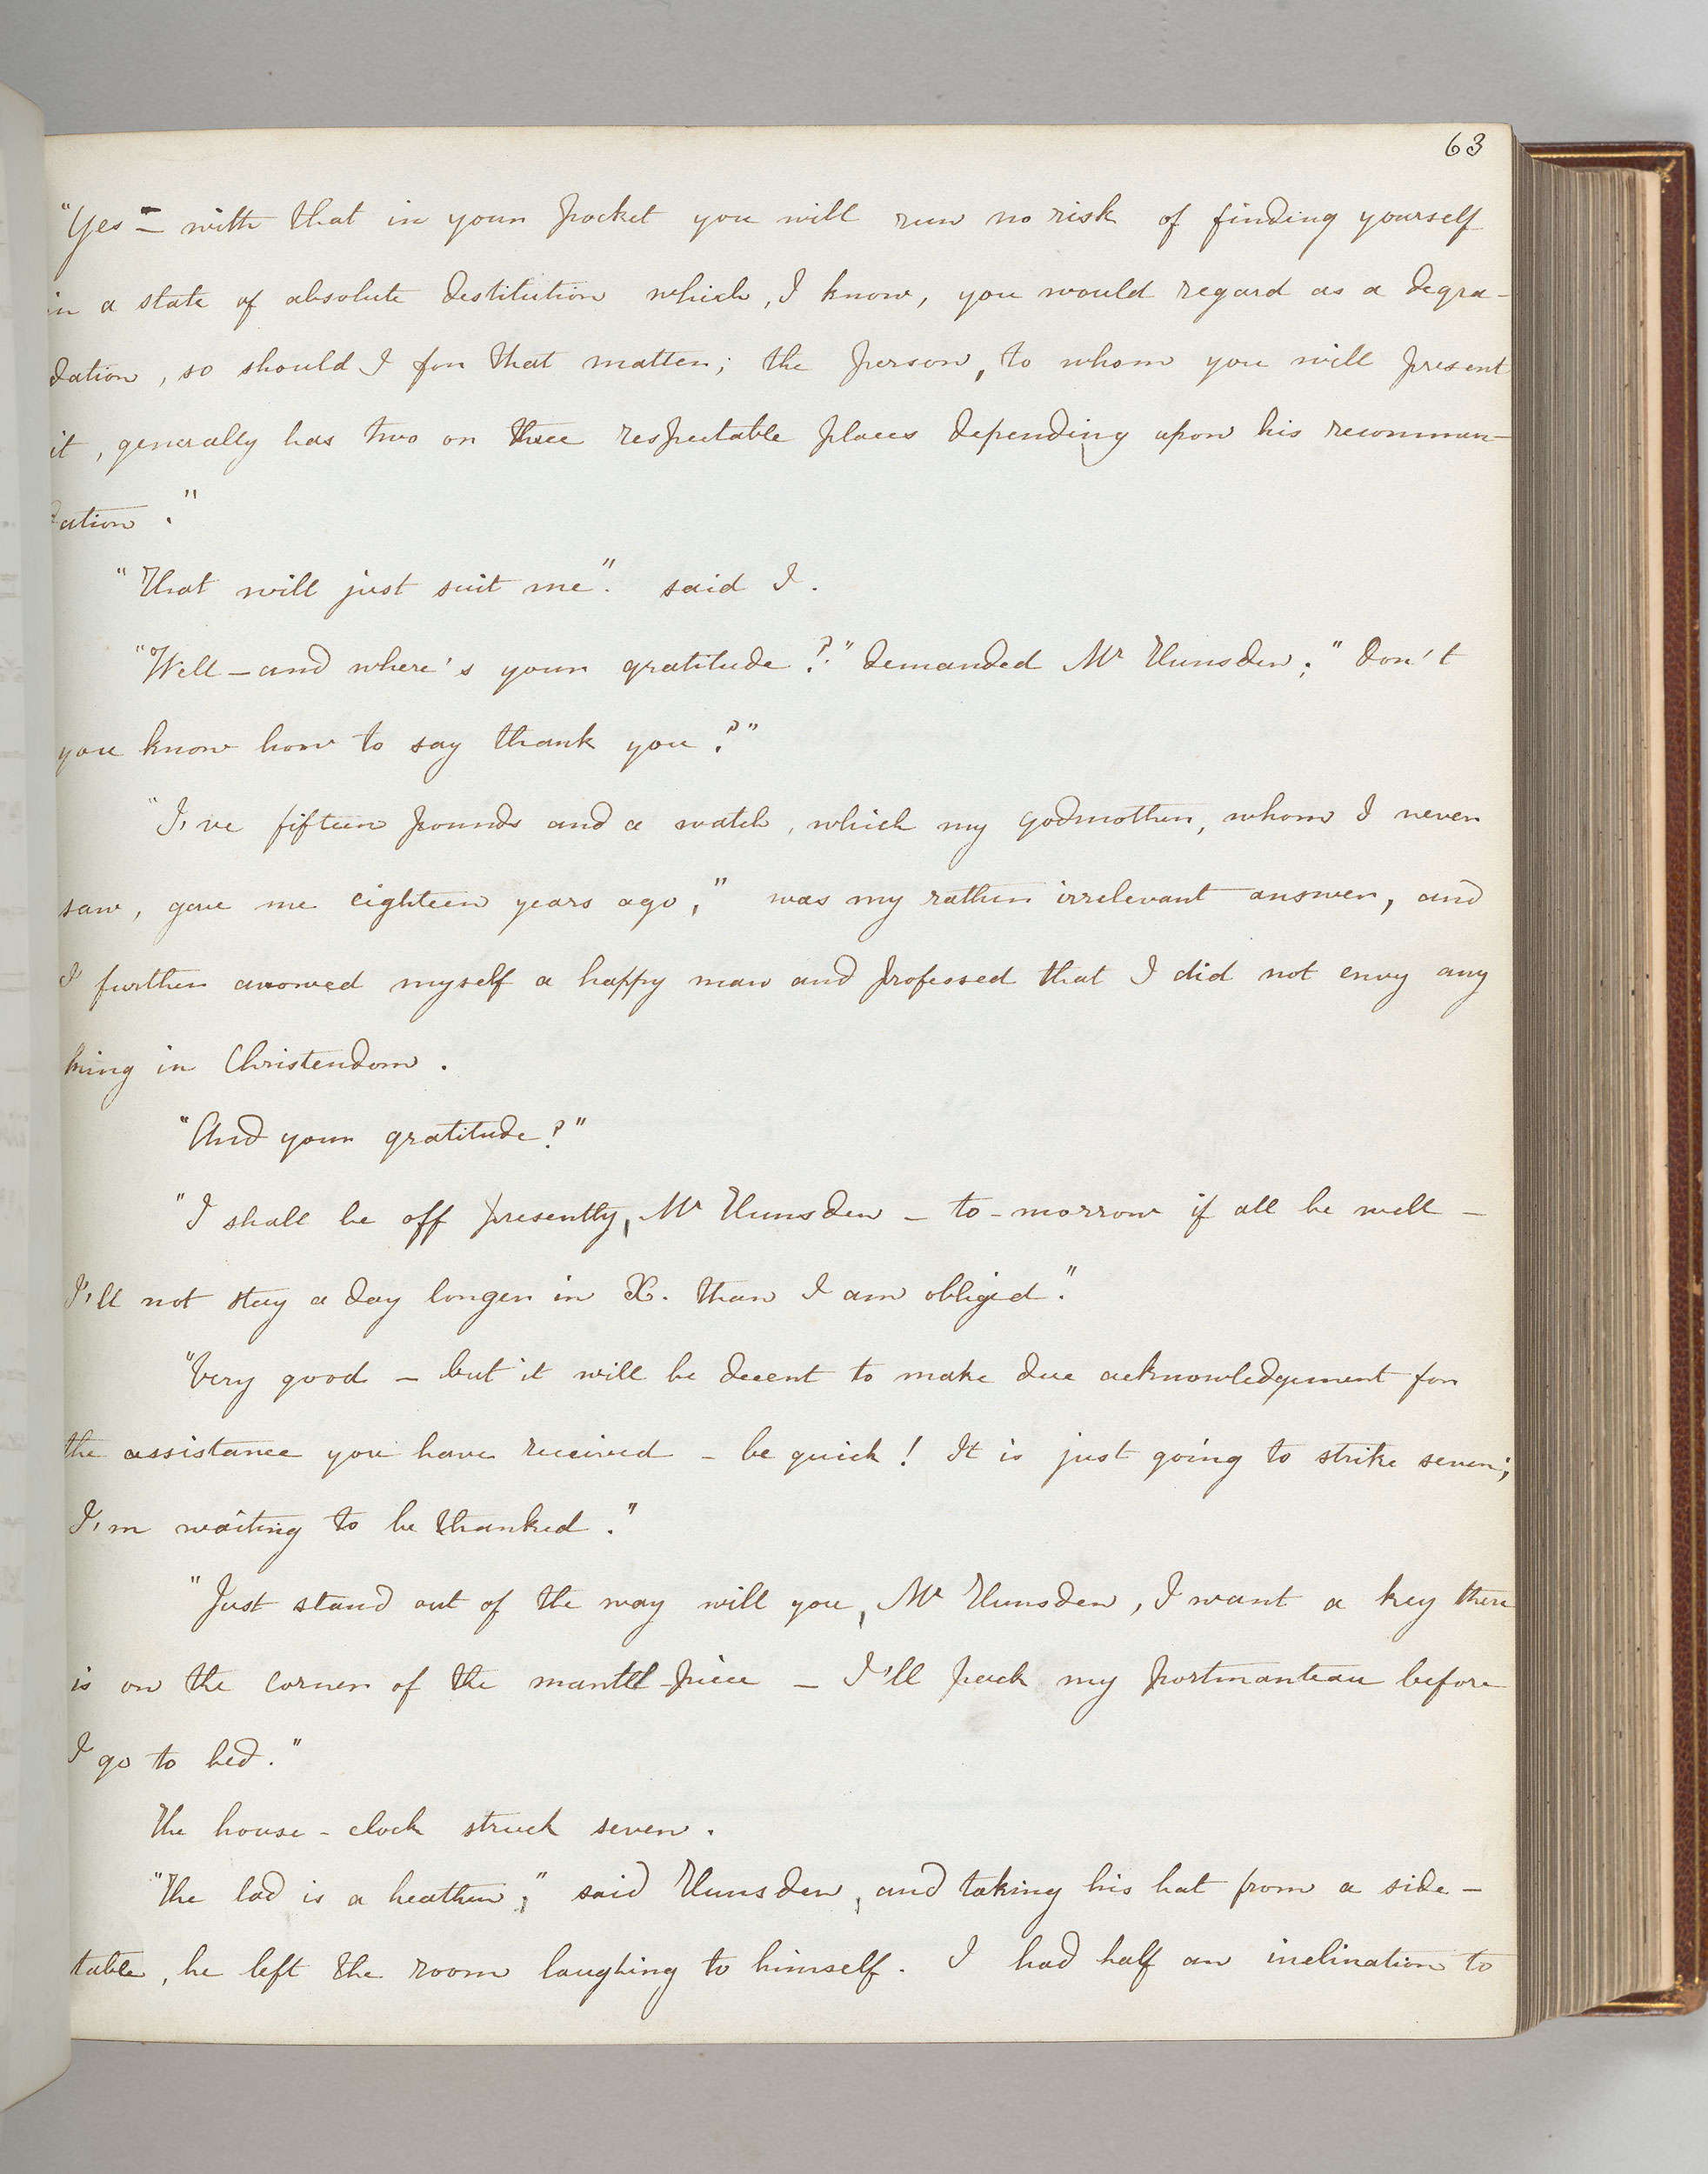 63
"Yes – with that in your pocket you will run no risk of finding yourself
in a state of absolute destitution which, I know, you would regard as a degra-
dation, so should I for that matter; the person, to whom you will present
it, generally has two or three respectable places depending upon his recommen-
dation."
"That will just suit me". said I.
"Well – and where's your gratitude?" demanded Mr Hunsden; "don't
you know how to say thank you?"
"I've fifteen pounds and a watch, which my godmother, whom I never
saw, gave me eighteen years ago," was my rather irrelevant answer, and
I further avowed myself a happy man and professed that I did not envy any
king in Christendom.
"And your gratitude?"
"I shall be off presently, Mr Hunsden – to-morrow if all be well –
I'll not stay a day longer in X. than I am obliged."
"Very good – but it will be decent to make due acknowledgement for
the assistance you have received – be quick! It is just going to strike seven;
I'm waiting to be thanked."
"Just stand out of the way will you, Mr Hunsden, I want a key there
is on the corner of the mantel-piece – I'll pack my portmanteau before
I go to bed."
The house-clock struck seven.
"The lad is a heathen," said Hunsden, and taking his hat from a side-
table, he left the room laughing to himself. I had half an inclination to